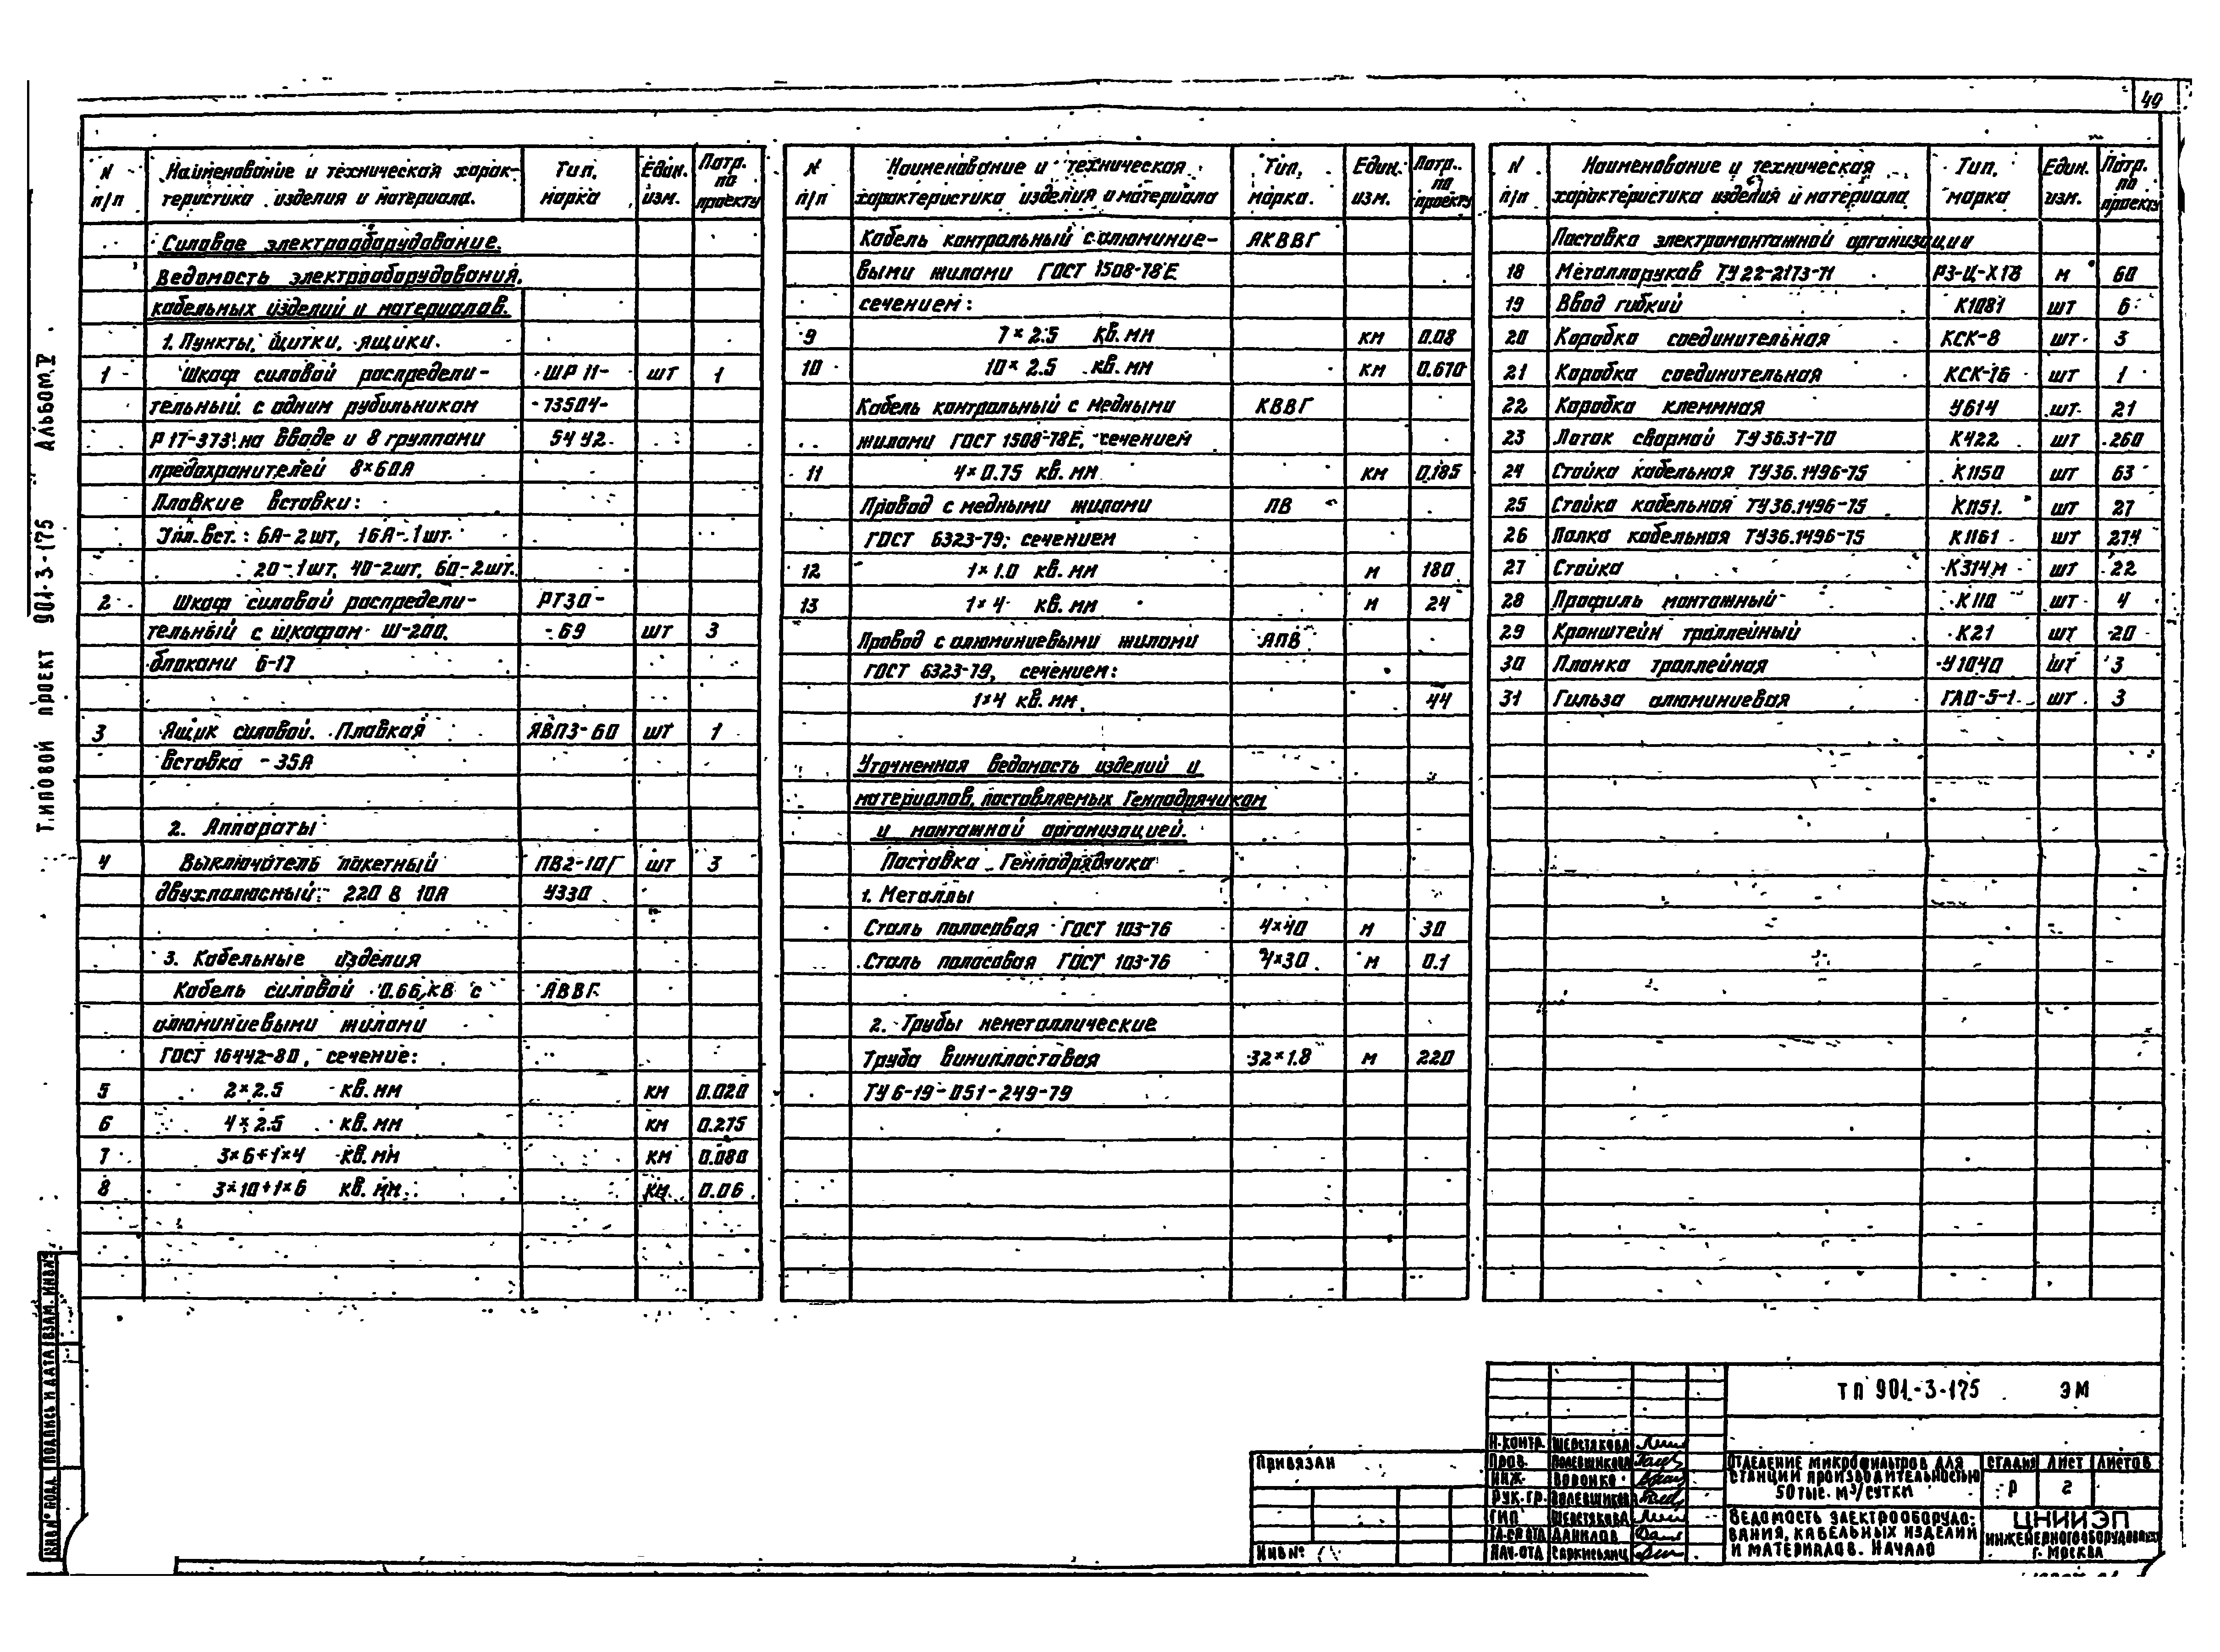 49
Альбом V
Типовой проект 901-3-175
N п/п Наименование и техническая харак- Тип, Един. Потр. по
теристика изделия и материала. марка изм. проекту
Силовое электрооборудование.
Ведомость электрооборудования,
кабельных изделий и материалов.
1. Пункты, щитки, ящики.
1 Шкаф силовой распредели- ШР 11- шт 1
тельный с одним рубильником -73504-
Р17-373 на вводе и 8 группами 54У2
предохранителей 8×60А
Плавкие вставки:
Iпл.вст.: 6А-2шт, 16А-1шт.
20-1шт, 40-2шт, 60-2шт.
2 Шкаф силовой распредели- РТ30-
тельный с шкафом Ш-200, -69 шт 3
блоками Б-17
3 Ящик силовой. Плавкая ЯВПЗ-60 шт 1
вставка -35А
2. Аппараты
4 Выключатель пакетный ПВ2-10Г шт 3
двухполюсный: 220 В 10А У330
3. Кабельные изделия
Кабель силовой 0.66 кВ с АВВГ
алюминиевыми жилами
ГОСТ 16442-80, сечение:
5 2×2.5 кв.мм км 0.020
6 4×2.5 кв.мм км 0.275
7 3×6+1×4 кв.мм км 0.080
8 3×10+1×6 кв.мм км 0.06
N Наименование и техническая Тип, Един. Потр. по
п/п характеристика изделия и материала марка. изм. проекту
Кабель контрольный с алюминие- АКВВГ
выми жилами ГОСТ 1508-78Е
сечением:
9 7×2.5 кв.мм км 0.08
10 10×2.5 кв.мм км 0.670
Кабель контрольный с медными КВВГ
жилами ГОСТ 1508-78Е, сечением
11 4×0.75 кв.мм км 0.185
Провод с медными жилами ПВ
ГОСТ 6323-79; сечением
12 1×1.0 кв.мм м 180
13 1×4 кв.мм м 24
Провод с алюминиевыми жилами АПВ
ГОСТ 6323-79, сечением:
1×4 кв.мм 44
Уточненная ведомость изделий и
материалов, поставляемых Генподрячиком
и монтажной организацией.
Поставка Генподрядчика
1. Металлы
Сталь полосовая ГОСТ 103-76 4×40 м 30
Сталь полосовая ГОСТ 103-76 4×30 м 0.1
2. Трубы неметаллические
Труба винипластовая 32×1.8 м 220
ТУ6-19-051-249-79
N Наименование и техническая Тип, Един. Потр. по
п/п характеристика изделия и материала марка изм. проекту
Поставка электромонтажной организации
18 Металлорукав ТУ22-2173-71 РЗ-Ц-Х18 м 60
19 Ввод гибкий К1081 шт 6
20 Коробка соединительная КСК-8 шт 3
21 Коробка соединительная КСК-16 шт 1
22 Коробка клеммная У614 шт. 21
23 Лоток сварной ТУ36.31-70 К422 шт 260
24 Стойка кабельная ТУ36.1496-75 К1150 шт 63
25 Стойка кабельная ТУ36.1496-75 К1151. шт 27
26 Полка кабельная ТУ36.1496-75 К1161 шт 274
27 Стойка К314м шт 22
28 Профиль монтажный К110 шт 4
29 Кронштейн троллейный К21 шт 20
30 Планка троллейная У1040 шт 3
31 Гильза алюминиевая ГАО-5-1 шт 3
ИНВ.№ ПОДЛ. ПОДПИСЬ И ДАТА ВЗАМ. ИНВ.№
Привязан
Инв№
Н.контр. Шерстякова
Пров. Полевщикова
Инж. Воронко
Рук.гр. Полевщикова
ГИП Шерстякова
Данилов
Нач.отд Саркисьянц
ТП 901-3-175 ЭМ
Отделение микрофильтров для
станции производительностью
50 тыс. м³/сутки
Стадия Лист Листов
Р 2
Ведомость электрооборудо-
вания, кабельных изделий
и материалов. Начало
ЦНИИЭП
инженерного оборудования
г. Москва